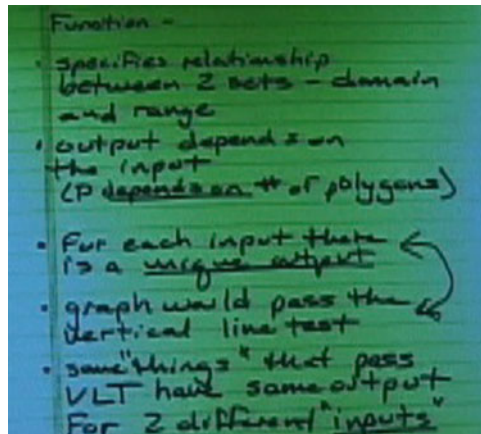 Function -
• specifies relationship
between 2 sets - domain
and range
• output depends on
the input
(P depends on # of polygons)
• For each input there
is a unique output
• graph would pass the
vertical line test
• some "things" that pass
VLT have same output
For 2 different "inputs"